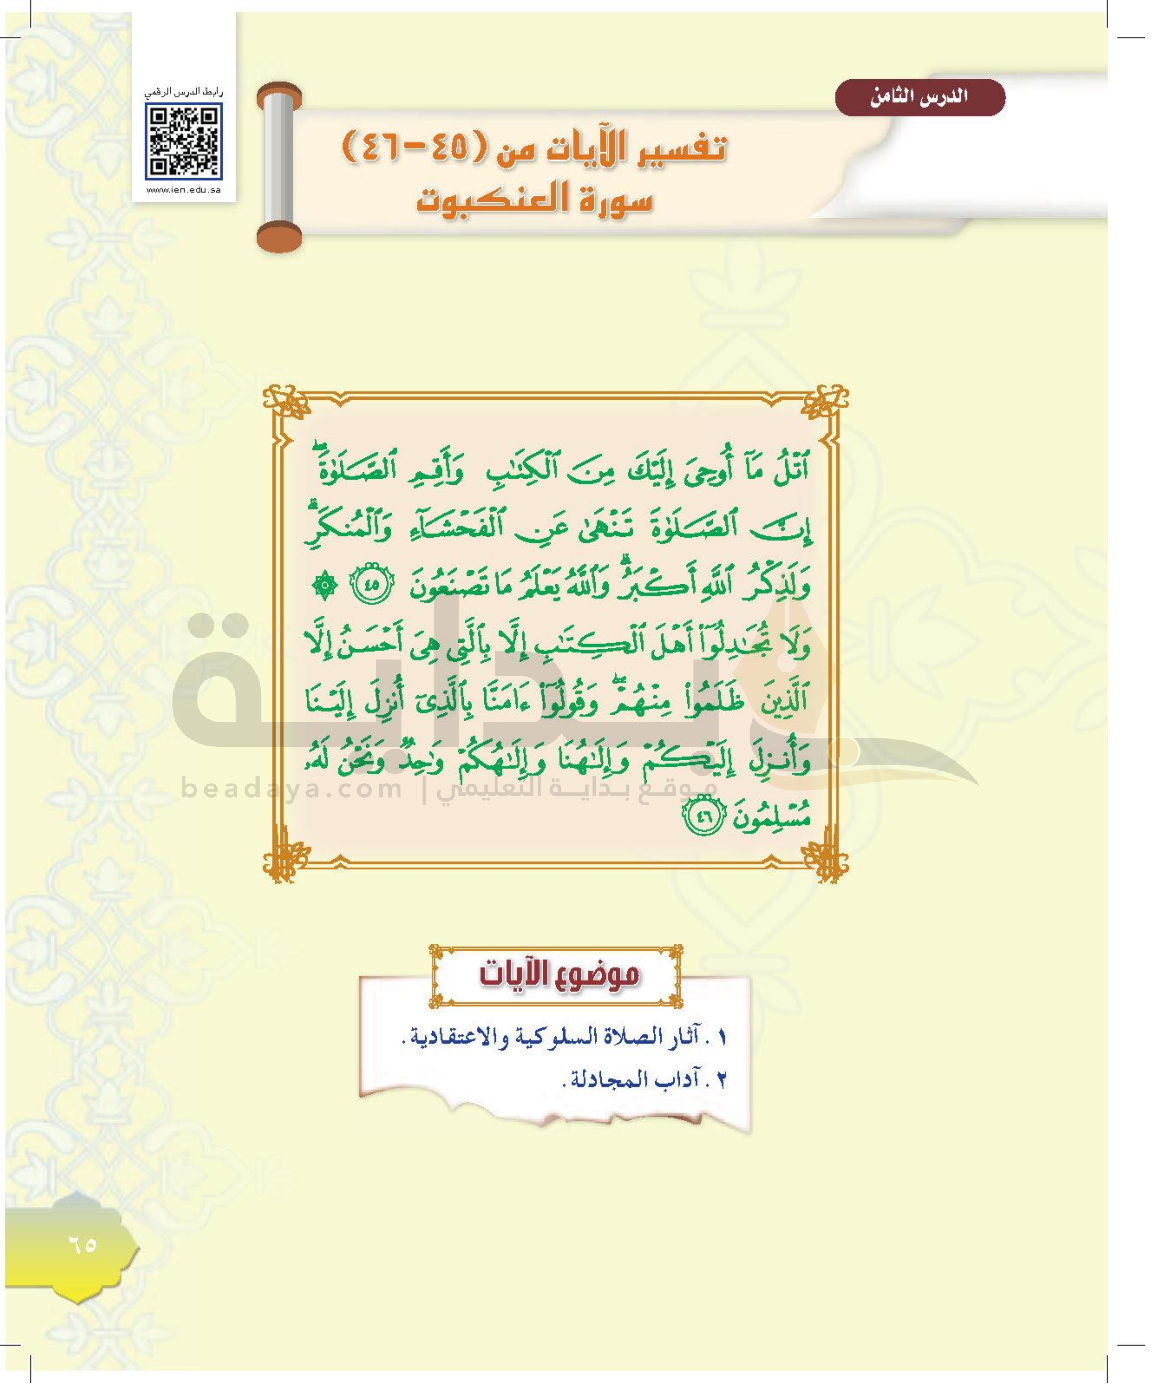 رابط الدرس الرقمي
www.ien.edu.sa
الدرس الثامن
تفسير الآيات من (٤٥-٤٦)
سورة العنكبوت
ٱتۡلُ مَآ أُوحِيَ إِلَيۡكَ مِنَ ٱلۡكِتَٰبِ وَأَقِمِ ٱلصَّلَوٰةَۖ
إِنَّ ٱلصَّلَوٰةَ تَنۡهَىٰ عَنِ ٱلۡفَحۡشَآءِ وَٱلۡمُنكَرِۗ
وَلَذِكۡرُ ٱللَّهِ أَكۡبَرُۗ وَٱللَّهُ يَعۡلَمُ مَا تَصۡنَعُونَ ٤٥ ۞
وَلَا تُجَٰدِلُوٓاْ أَهۡلَ ٱلۡكِتَٰبِ إِلَّا بِٱلَّتِي هِيَ أَحۡسَنُ إِلَّا
ٱلَّذِينَ ظَلَمُواْ مِنۡهُمۡۖ وَقُولُوٓاْ ءَامَنَّا بِٱلَّذِيٓ أُنزِلَ إِلَيۡنَا
وَأُنزِلَ إِلَيۡكُمۡ وَإِلَٰهُنَا وَإِلَٰهُكُمۡ وَٰحِدٞ وَنَحۡنُ لَهُۥ
مُسۡلِمُونَ ٤٦
بداية
موقع بداية التعليمي | beadaya.com
موضوع الآيات
١ . آثار الصلاة السلوكية والاعتقادية .
٢ . آداب المجادلة .
٦٥